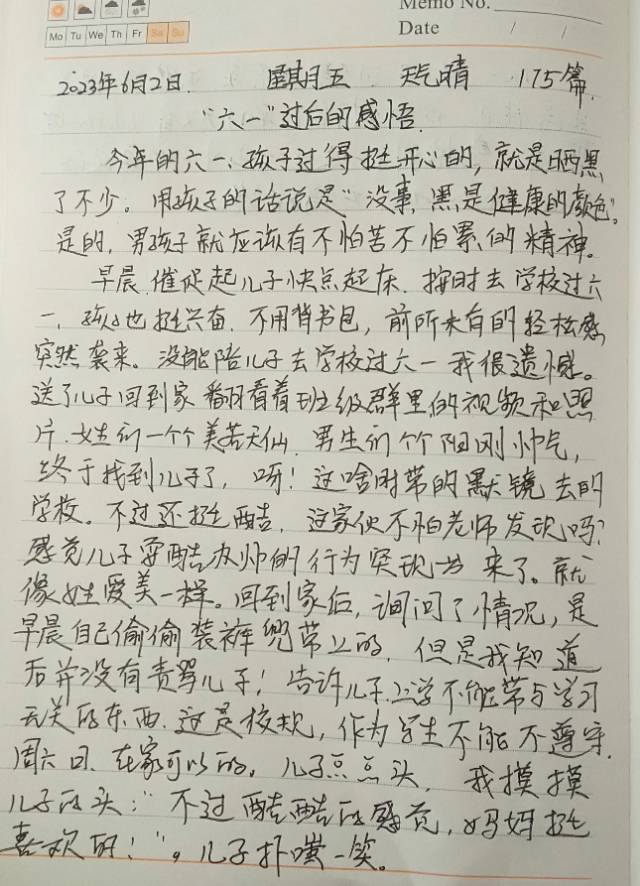 Memo No.
Mo Tu We Th Fr Sa Su
Date / /
2023年6月2日. 星期五 天气晴 175篇.
“六一”过后的感悟.
今年的六一、孩子过得挺开心的, 就是晒黑
了不少。用孩子的话说是“没事, 黑是健康的颜色”。
是的, 男孩子就应该有不怕苦不怕累的精神。
早晨, 催促起儿子快点起床, 按时去学校过六
一, 孩子也挺兴奋, 不用背书包, 前所未有的轻松感
突然袭来。没能陪儿子去学校过六一我很遗憾。
送了儿子回到家翻看着班级群里的视频和照
片, 女生们一个个美若天仙, 男生们个个阳刚帅气,
终于找到儿子了, 呀! 这啥时带的墨镜去的
学校。不过还挺酷, 这家伙不怕老师发现吗?
感觉儿子耍酷友帅的行为突现出来了。就
像女生爱美一样。回到家后, 询问了情况, 是
早晨自己偷偷装裤兜带上的, 但是我知道
后并没有责骂儿子! 告诉儿子上学不能带与学习
无关的东西, 这是校规, 作为学生不能不遵守.
周六日, 在家可以的。儿子点点头, 我摸摸
儿子的头: “不过酷酷的感觉, 妈妈挺
喜欢的! ”。儿子扑嗤一笑。